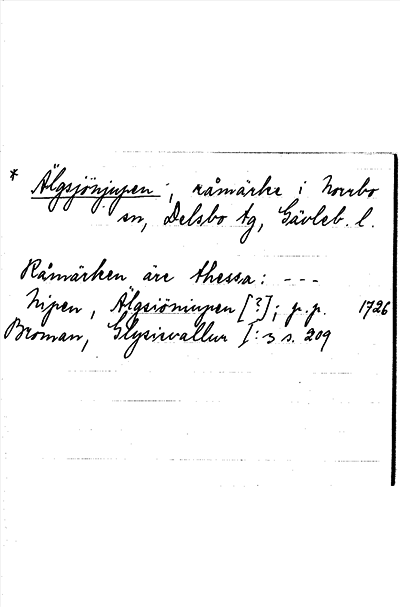 * Älgsjönjupen ; råmärke i Norrbo
sn, Delsbo tg, Gävleb. l.
Råmärken äre thessa: ---
Nipen, Älgsiöniupen [?]; p.p. 1726
Broman, Glysisvallur I: 3 s. 209